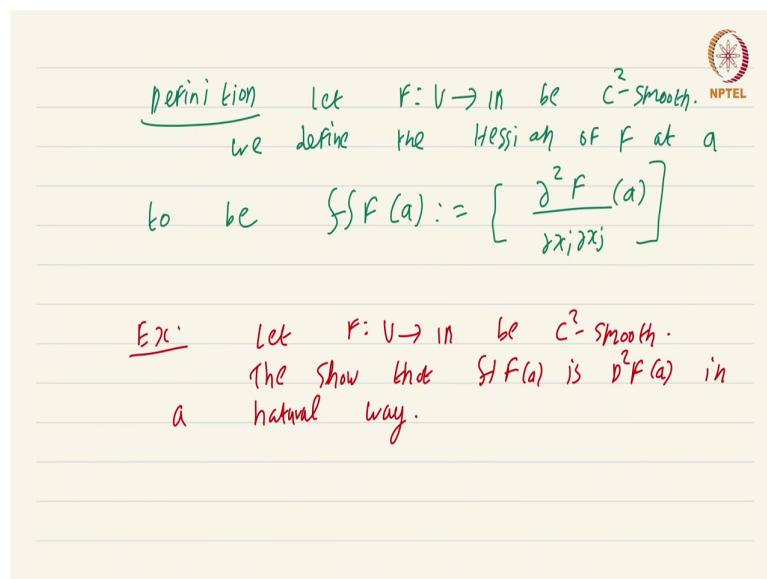 NPTEL
Definition Let F: U → ℝ be C²-smooth.
we define the Hessian of F at a
to be ℋF(a) := [ ∂²F/∂xᵢ∂xⱼ (a) ]
Ex: Let F: U → ℝ be C²-smooth.
The show that ℋF(a) is D²F(a) in
a natural way.